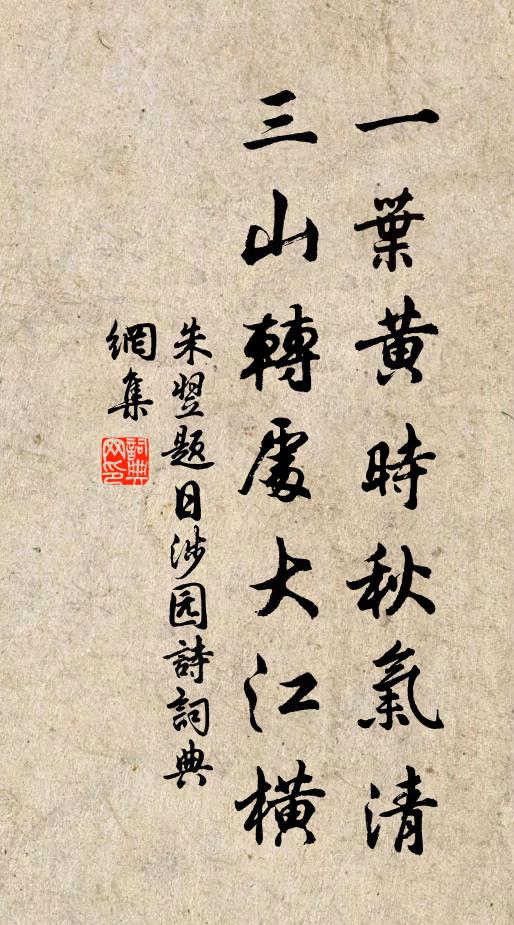 一葉黄時秋氣清
三山轉處大江橫
朱翌题日涉园詩詞典
網集
詞典網印